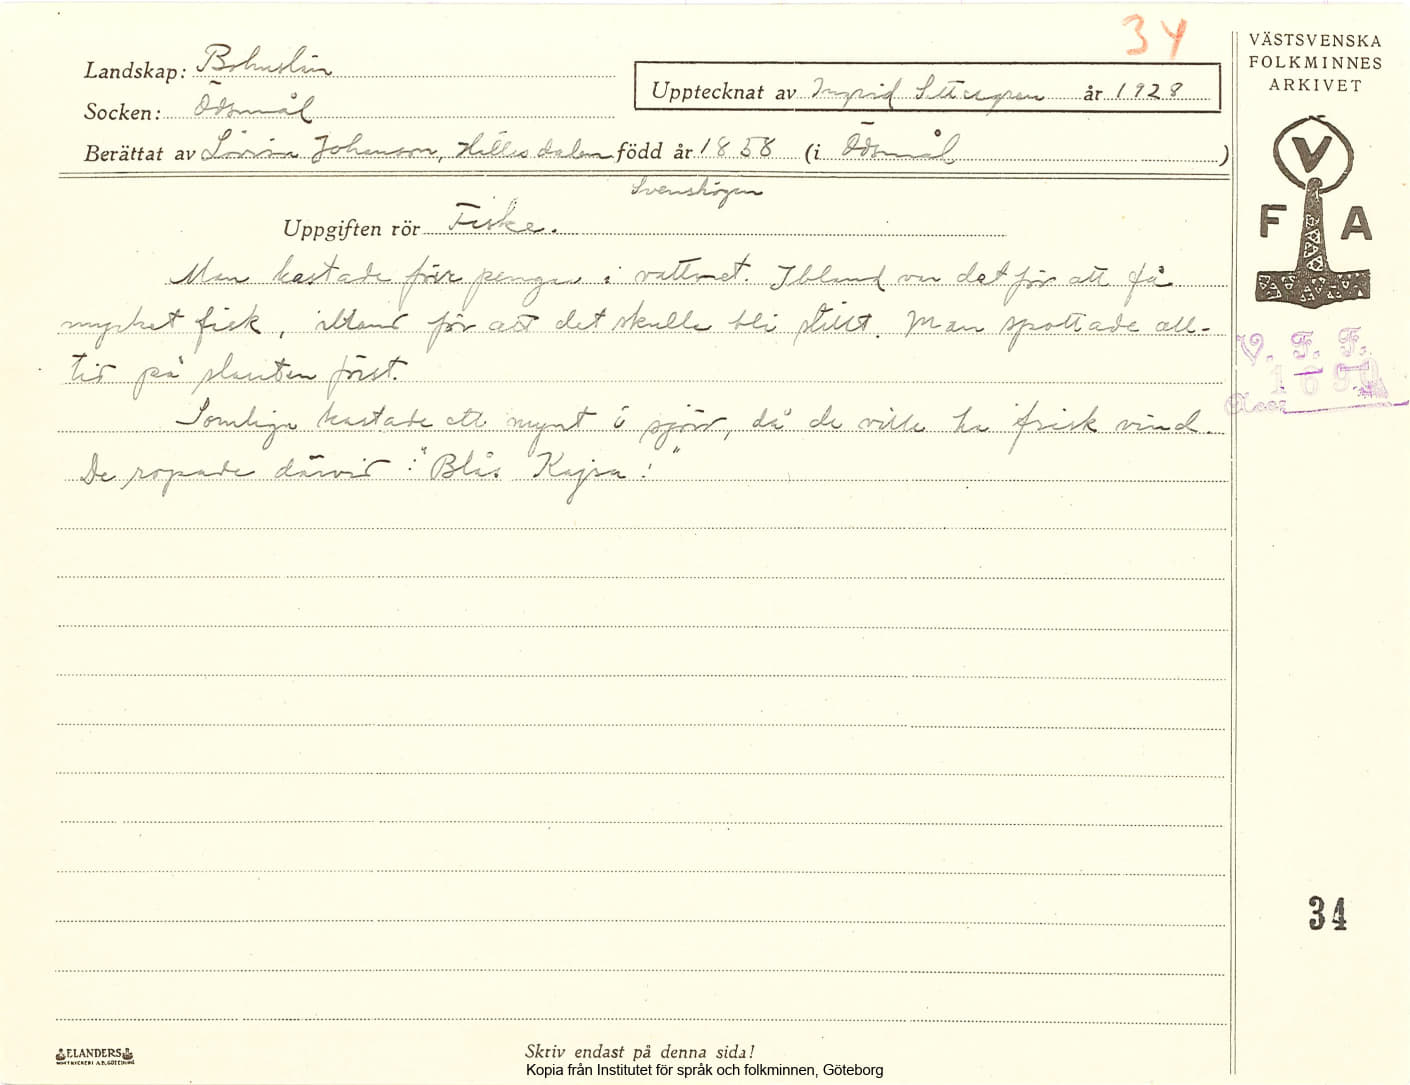 34
Landskap: Bohuslän
Socken: Ödsmål
Upptecknat av Ingrid år 1928
Berättat av Johanson, född år 1858 (i Ödsmål )
Svenshögen
Uppgiften rör Fiske.
Man kastade förr pengar i vattnet. Ibland var det för att få
mycket fisk, ibland för att det skulle bli stilt. Man spottade all-
tid på slanten först.
Somliga kastade ett mynt i sjön, då de ville ha frisk vind.
De ropade därvid: "Blås Kajsa!"
VÄSTSVENSKA
FOLKMINNES
ARKIVET
V
F A
V. F. F.
34
ELANDERS
Skriv endast på denna sida!
Kopia från Institutet för språk och folkminnen, Göteborg